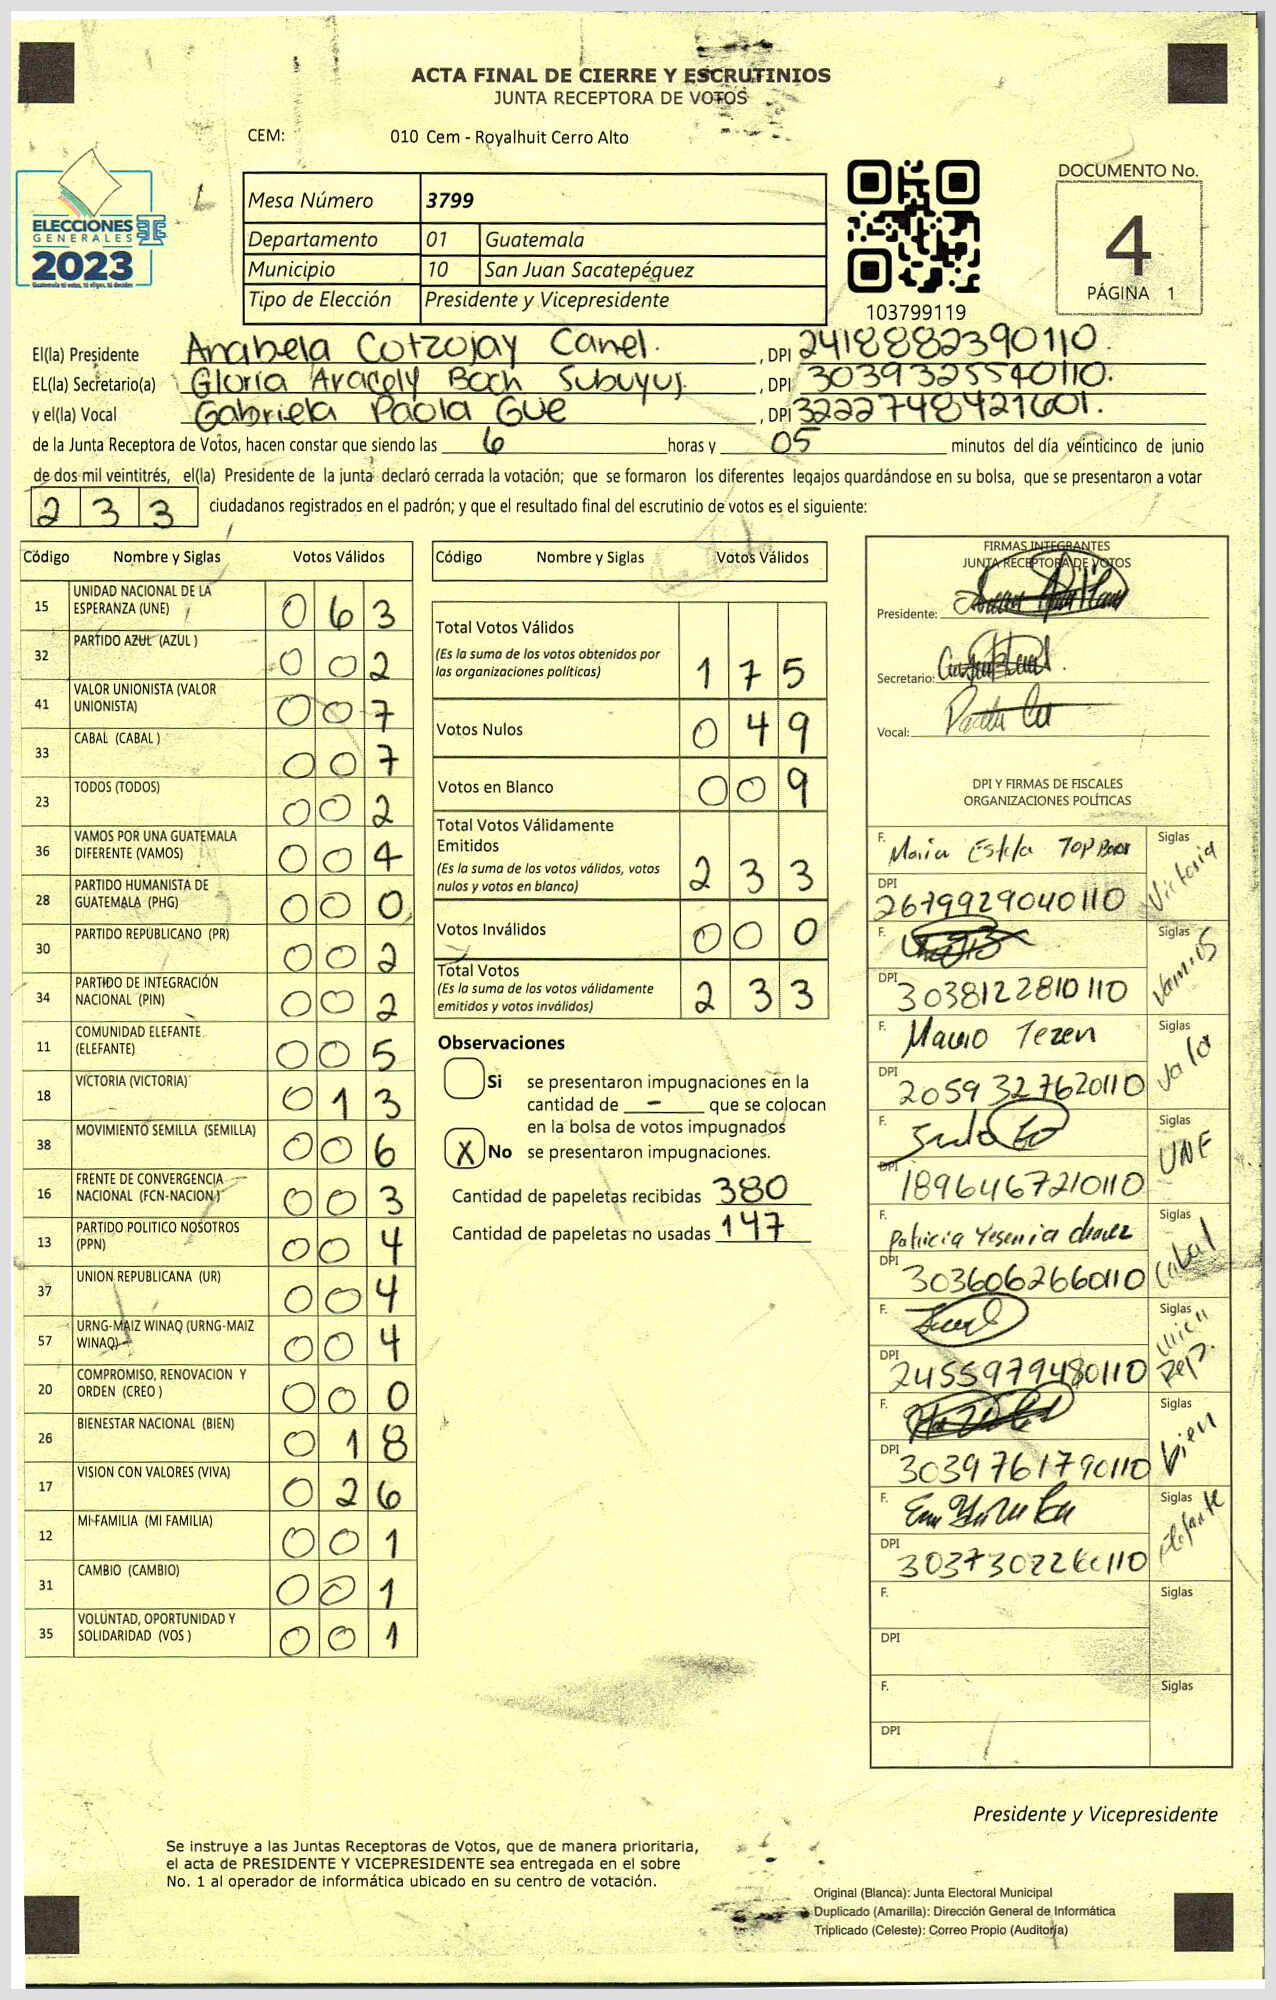 ACTA FINAL DE CIERRE Y ESCRUTINIOS
JUNTA RECEPTORA DE VOTOS
CEM: 010 Cem - Royalhuit Cerro Alto
ELECCIONES
GENERALES
2023
Guatemala tú votas, tú eliges, tú decides
Mesa Número 3799
Departamento 01 Guatemala
Municipio 10 San Juan Sacatepéquez
Tipo de Elección Presidente y Vicepresidente
103799119
DOCUMENTO No.
4
PÁGINA 1
El(la) Presidente Anabela Cotzojay Canel. , DPI 2418882390110.
EL(la) Secretario(a) Gloria Aracely Boch Subuyuj , DPI 3039325540110.
y el(la) Vocal Gabriela Paola Gue , DPI 3222748421601.
de la Junta Receptora de Votos, hacen constar que siendo las 6 horas y 05 minutos del día veinticinco de junio
de dos mil veintitrés, el(la) Presidente de la junta declaró cerrada la votación; que se formaron los diferentes legajos guardándose en su bolsa, que se presentaron a votar
233 ciudadanos registrados en el padrón; y que el resultado final del escrutinio de votos es el siguiente:
Código Nombre y Siglas Votos Válidos
15 UNIDAD NACIONAL DE LA ESPERANZA (UNE) 063
32 PARTIDO AZUL (AZUL ) 002
41 VALOR UNIONISTA (VALOR UNIONISTA) 007
33 CABAL (CABAL ) 007
23 TODOS (TODOS) 002
36 VAMOS POR UNA GUATEMALA DIFERENTE (VAMOS) 004
28 PARTIDO HUMANISTA DE GUATEMALA (PHG) 000
30 PARTIDO REPUBLICANO (PR) 002
34 PARTIDO DE INTEGRACIÓN NACIONAL (PIN) 002
11 COMUNIDAD ELEFANTE (ELEFANTE) 005
18 VICTORIA (VICTORIA) 013
38 MOVIMIENTO SEMILLA (SEMILLA) 006
16 FRENTE DE CONVERGENCIA NACIONAL (FCN-NACION ) 003
13 PARTIDO POLITICO NOSOTROS (PPN) 004
37 UNION REPUBLICANA (UR) 004
57 URNG-MAIZ WINAQ (URNG-MAIZ WINAQ) 004
20 COMPROMISO, RENOVACION Y ORDEN (CREO ) 000
26 BIENESTAR NACIONAL (BIEN) 018
17 VISION CON VALORES (VIVA) 026
12 MI FAMILIA (MI FAMILIA) 001
31 CAMBIO (CAMBIO) 001
35 VOLUNTAD, OPORTUNIDAD Y SOLIDARIDAD (VOS ) 001
Código Nombre y Siglas Votos Válidos
Total Votos Válidos
(Es la suma de los votos obtenidos por
las organizaciones políticas) 175
Votos Nulos 049
Votos en Blanco 009
Total Votos Válidamente
Emitidos
(Es la suma de los votos válidos, votos
nulos y votos en blanco) 233
Votos Inválidos 000
Total Votos
(Es la suma de los votos válidamente
emitidos y votos inválidos) 233
Observaciones
Si se presentaron impugnaciones en la
cantidad de - que se colocan
en la bolsa de votos impugnados
X No se presentaron impugnaciones.
Cantidad de papeletas recibidas 380
Cantidad de papeletas no usadas 147
FIRMAS INTEGRANTES
JUNTA RECEPTORA DE VOTOS
Presidente:
Secretario:
Vocal:
DPI Y FIRMAS DE FISCALES
ORGANIZACIONES POLÍTICAS
F. Maria Estela Top Siglas Victoria
DPI 2679929040110
F. Siglas Vamos
DPI 3038122810110
F. Mauro Tezen Siglas Valor
DPI 2059327620110
F. Siglas UNE
DPI 1896467210110
F. Patricia Yesenia Siglas Cabal
DPI 3036062660110
F. Siglas Union Rep.
DPI 2455979480110
F. Siglas bien
DPI 3039761790110
F. Siglas Elefante
DPI 3037302260110
F. Siglas
DPI
F. Siglas
DPI
Presidente y Vicepresidente
Se instruye a las Juntas Receptoras de Votos, que de manera prioritaria,
el acta de PRESIDENTE Y VICEPRESIDENTE sea entregada en el sobre
No. 1 al operador de informática ubicado en su centro de votación.
Original (Blanca): Junta Electoral Municipal
Duplicado (Amarilla): Dirección General de Informática
Triplicado (Celeste): Correo Propio (Auditoría)